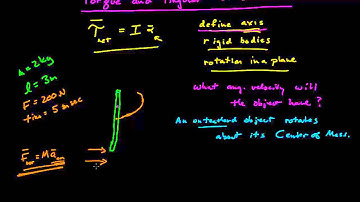 Torque and Angular
τ̄net = I ᾱR
define axis
rigid bodies
rotation in a plane
m = 2 kg
l = 3m
F = 200N
time = 5 msec
F̄net = M ācm
what ang. velocity will
the object have?
An untethered object rotates
about its Center of Mass.